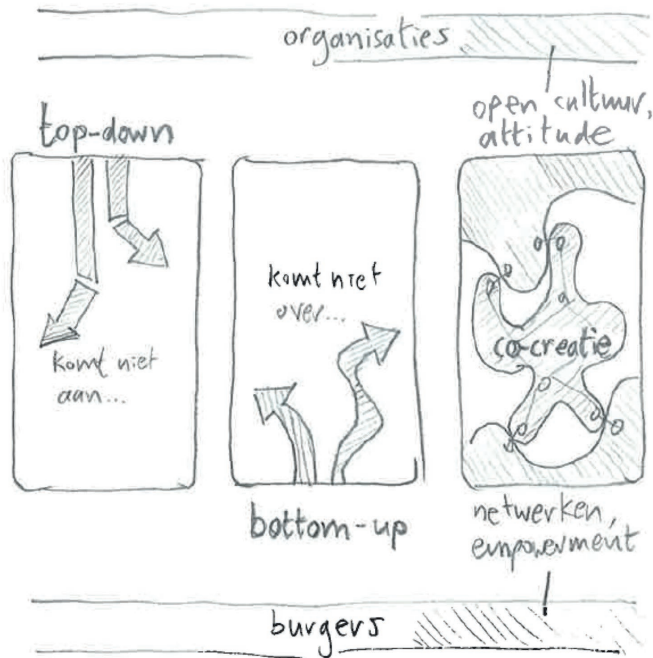 organisaties
open cultuur,
attitude
top-down
komt niet
aan...
komt niet
over...
bottom-up
co-creatie
netwerken,
empowerment
burgers